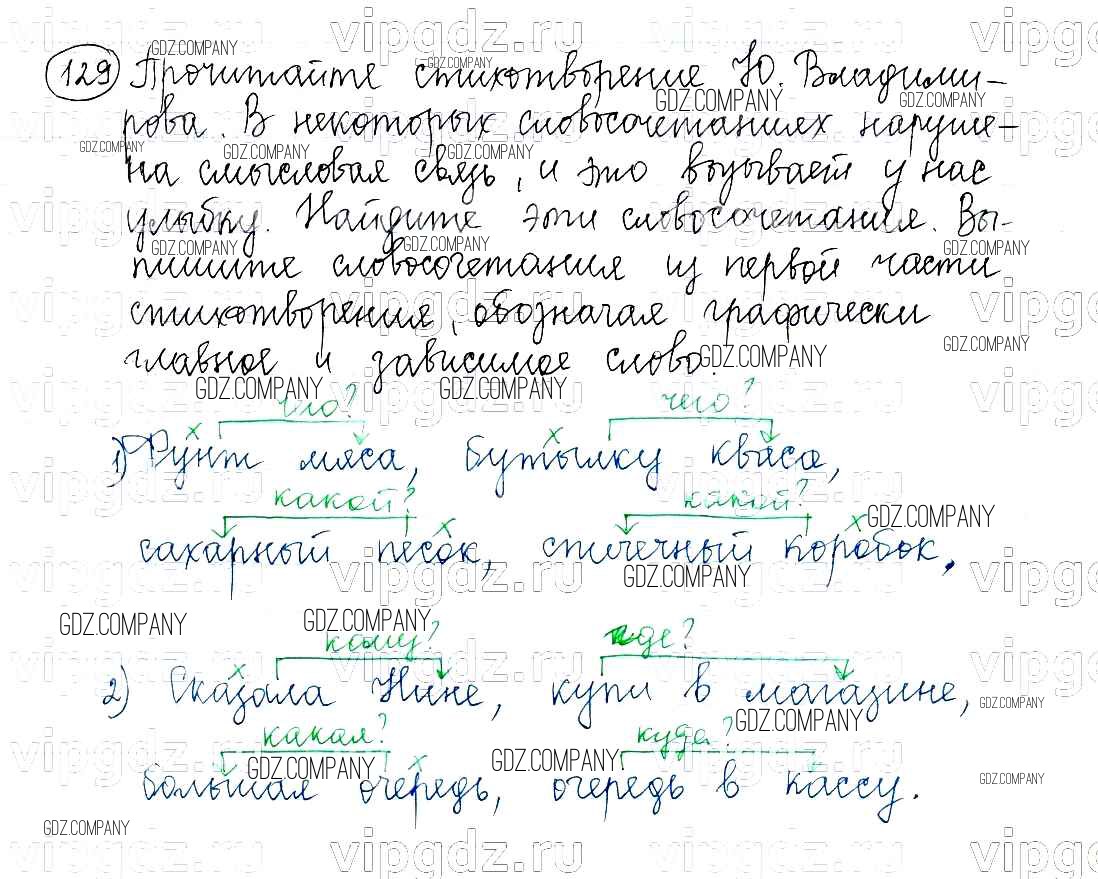 129 Прочитайте стихотворение Ю. Владими-
рова. В некоторых словосочетаниях наруше-
на смысловая связь, и это вызывает у нас
улыбку. Найдите эти словосочетания. Вы-
пишите словосочетания из первой части
стихотворения, обозначая графически
главное и зависимое слово.
что? чего?
1) Фунт мяса, бутылку кваса,
какой? какой?
сахарный песок, спичечный коробок.
кому? где?
2) Сказала Нине, купи в магазине,
какая? куда?
большая очередь, очередь в кассу.
GDZ.COMPANY
vipgdz.ru